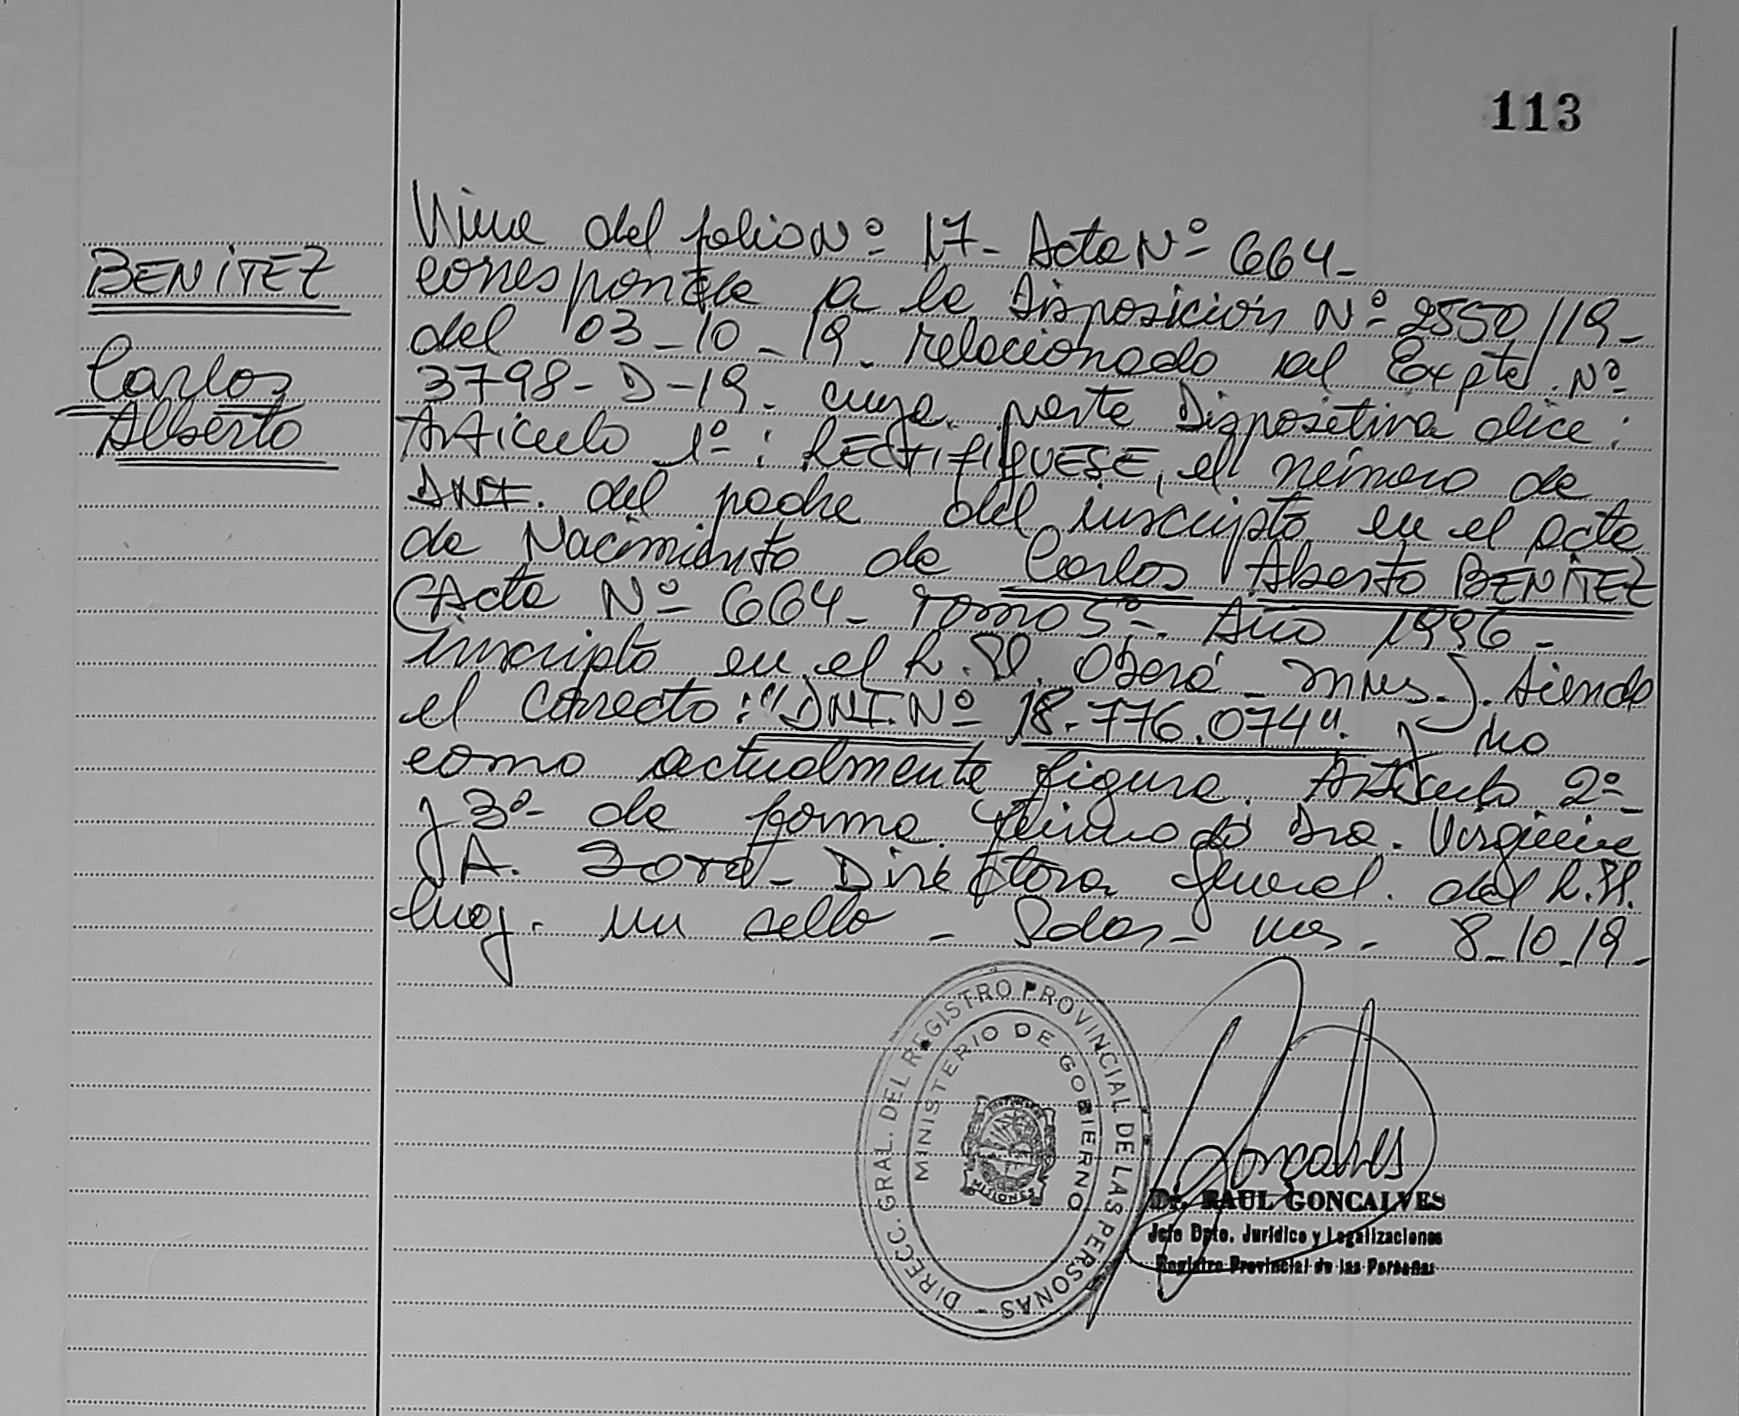 113
BENITEZ
Carlos
Alberto
Viene del folio Nº 17- Acta Nº 664-
corresponde a la Disposición Nº 2550/19-
del 03-10-19- relacionado al Expte. Nº
3798-D-19- cuya parte Dispositiva dice:
Artículo 1º: RECTIFIQUESE, el número de
DNI. del padre del inscripto en el acta
de Nacimiento de Carlos Alberto BENITEZ
(Acta Nº 664- Tomo 5º- Año 1996-
inscripto en el R.P. Oberá - mnes.). siendo
el correcto: "DNI. Nº 18.776.074". y no
como actualmente figura. Artículo 2º-
y 3º- de forma firmado Dra.
A. - Directora General. del R.P.
hay. un sello - Pdas- mes- 8-10-19-
DIRECC. GRAL. DEL REGISTRO PROVINCIAL DE LAS PERSONAS -
MINISTERIO DE GOBIERNO
MISIONES
Gonçalves
Dr. RAUL GONCALVES
Jefe Dpto. Jurídico y Legalizaciones
Registro Provincial de las Personas